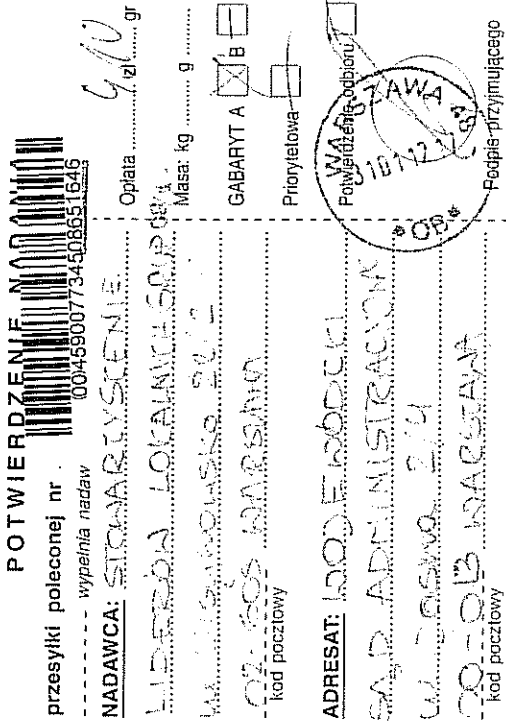 POTWIERDZENIE NADANIA
przesyłki poleconej nr
(00)459007734508651646
wypełnia nadaw
NADAWCA: STOWARZYSZENIE
LIDERÓW LOKALNYCH GRUP
02-605 WARSZAWA
kod pocztowy
ADRESAT: WOJEWÓDZKI
SĄD ADMINISTRACYJNY
2/4
00-013 WARSZAWA
kod pocztowy
Opłata (zł) gr
Masa: kg g
GABARYT A B
Priorytetowa
Potwierdzenie odbioru
WARSZAWA
OB
Podpis przyjmującego